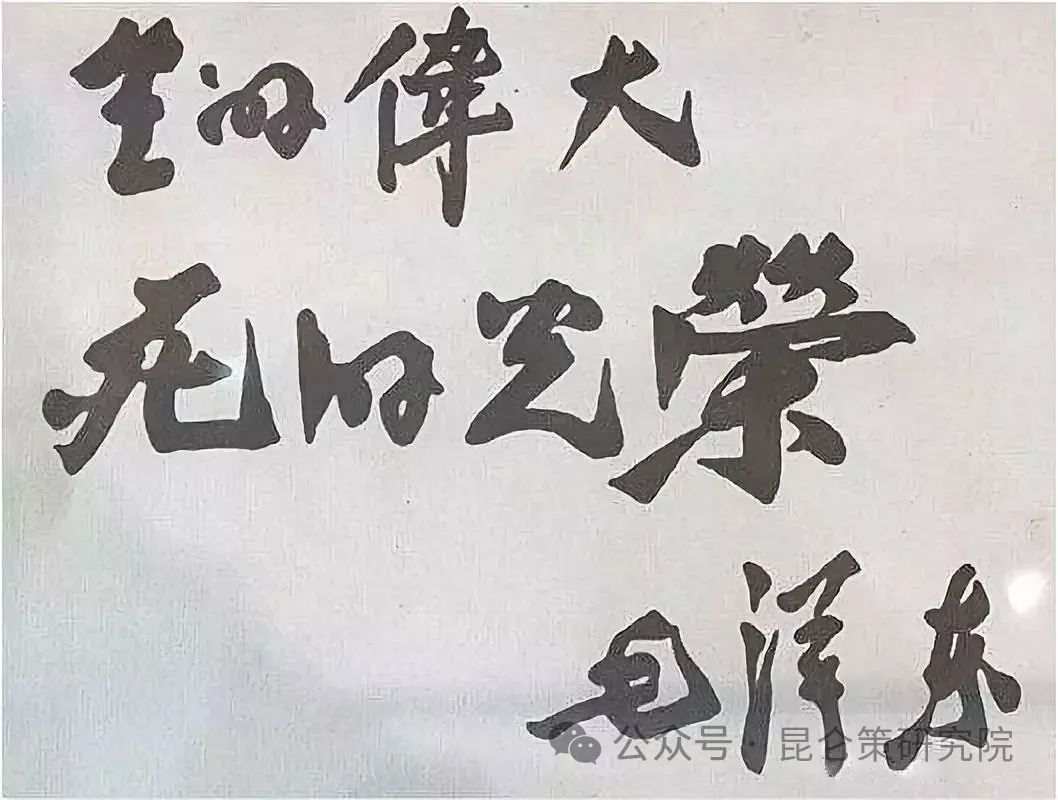 生的偉大
死的光榮
毛泽东
公众号 · 昆仑策研究院